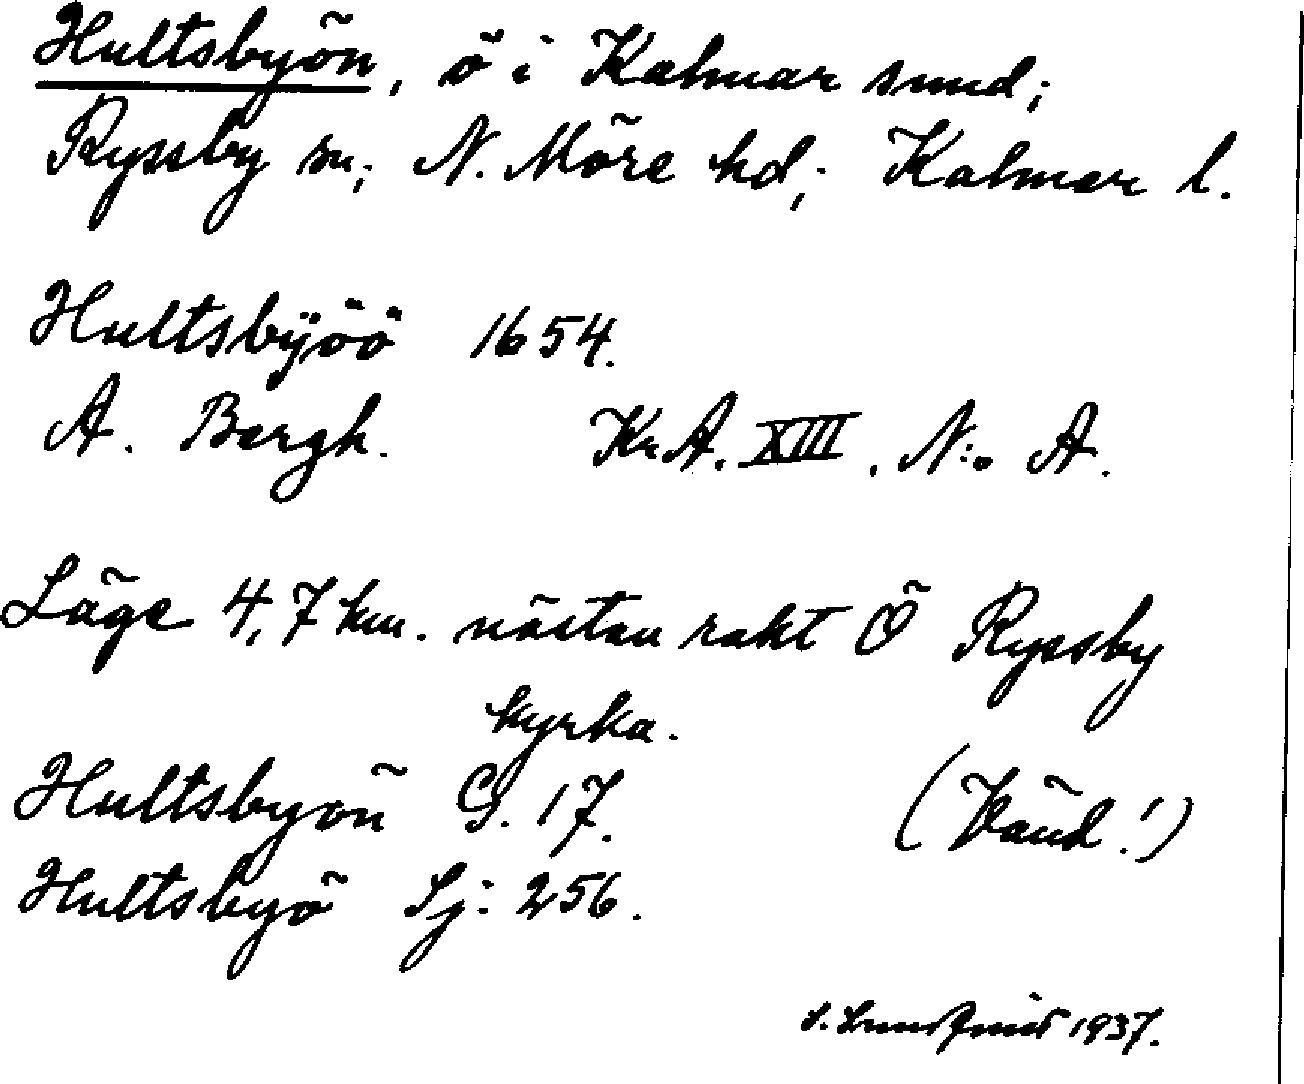 Hultsbyön, ö i Kalmar sund;
Ryssby sn; N. Möre hd; Kalmar l.
Hultsbÿöö 1654.
A. Bergh. Kr.A. XIII. N:o A.
Läge 4,7 km. nästan rakt Ö Ryssby
kyrka.
Hultsbyön G. 17. (Vänd!)
Hultsbyö Sj: 256.
S. Lundqvist 1937.